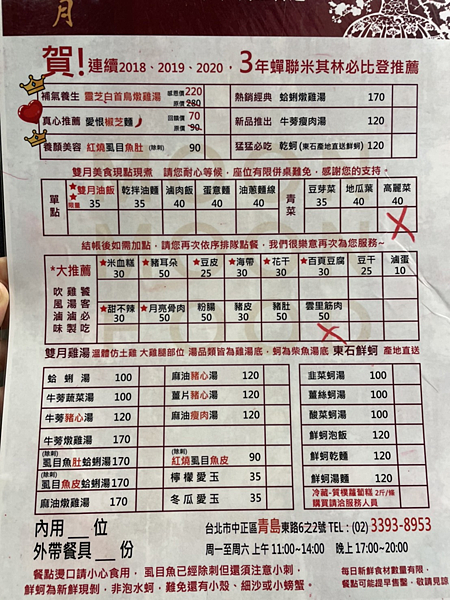 月
賀!連續2018、2019、2020,3年蟬聯米其林必比登推薦
補氣養生 靈芝白首烏燉雞湯 感恩價220 原價280
熱銷經典 蛤蜊燉雞湯 170
真心推薦 愛恨椒芝麵 回饋價70 原價90
新品推出 牛蒡瘦肉湯 120
養顏美容 紅燒虱目魚肚(除刺) 90
猛猛必吃 乾蚵(東石產地直送鮮蚵) 120
雙月美食現點現煮 請您耐心等候,座位有限併桌難免,感謝您的支持。
單點
★雙月油飯 35 限量
乾拌油麵 35
滷肉飯 40
蛋意麵 40
油蔥麵線 40
青菜
豆芽菜 35
地瓜葉 40
高麗菜 40
結帳後如需加點,請您再次依序排隊點餐,我們很樂意再次為您服務~
*大推薦
吹風味 雞湯滷製 饕客必吃
★米血糕 30
★豬耳朵 50
★豆皮 25
★海帶 30
★花干 30
★百頁豆腐 30
豆干 25
滷蛋 10
★甜不辣 30
★月亮骨肉 50
粉腸 50
豬皮 30
豬肚 50
雲里筋肉 50
雙月雞湯 溫體仿土雞 大雞腿部位 湯品類皆為雞湯底,蚵為柴魚湯底 東石鮮蚵 產地直送
蛤蜊湯 100
麻油豬心湯 120
韭菜蚵湯 100
牛蒡蔬菜湯 100
薑片豬心湯 120
薑絲蚵湯 100
牛蒡豬心湯 120
麻油瘦肉湯 120
酸菜蚵湯 100
牛蒡燉雞湯 170
鮮蚵泡飯 120
(除刺)虱目魚肚蛤蜊湯 170
(除刺)紅燒虱目魚皮 90
鮮蚵乾麵 120
(除刺)虱目魚皮蛤蜊湯 170
檸檬愛玉 35
鮮蚵湯麵 120
麻油燉雞湯 170
冬瓜愛玉 35
冷藏-質樸蘿蔔糕2斤/條
購買請洽服務人員
內用 位
外帶餐具 份
台北市中正區青島東路6之2號 TEL:(02) 3393-8953
周一至周六 上午 11:00~14:00 晚上 17:00~20:00
餐點燙口請小心食用, 虱目魚已經除刺但還須注意小刺,
鮮蚵為新鮮現剝,非泡水蚵,難免還有小殼、細沙或小螃蟹。
每日新鮮食材數量有限,
餐點可能提早售鑿,敬請見諒